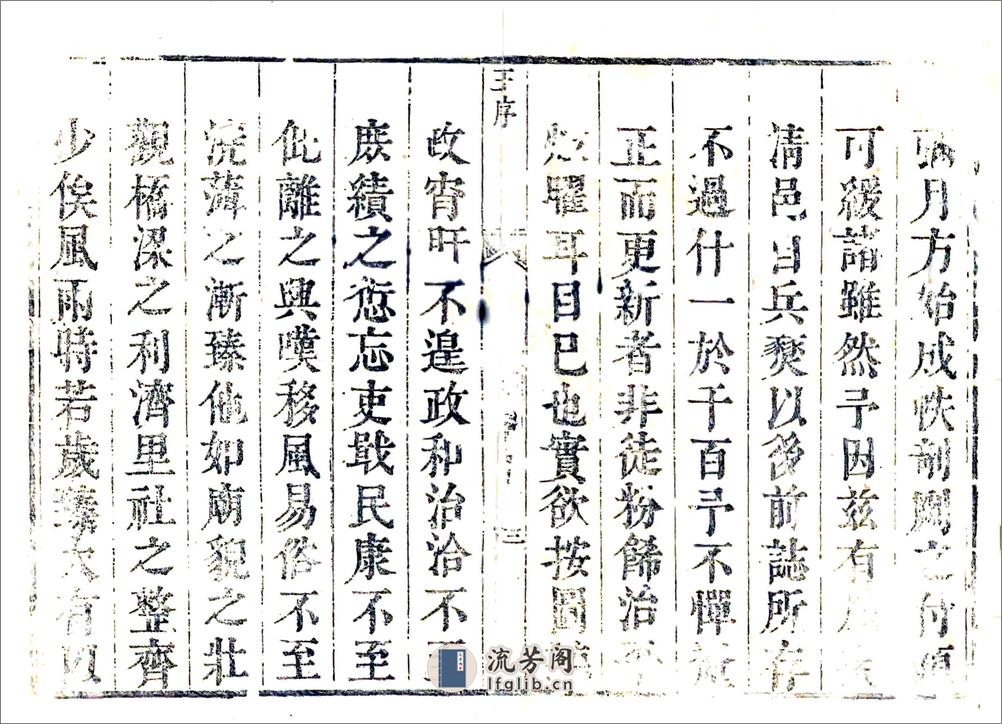 月方始成帙剞劂之付
可緩諸雖然予因玆有
清邑自兵燹以後前誌所存
不過什一於千百予不憚
正而更新者非徒粉飾治
炫耀耳目已也實欲按圖
王序
三
政宵旰不遑政和治洽不
庶績之愆忘吏戢民康不至
仳離之興嘆移風易俗不至
澆薄之漸臻他如廟貌之壯
觀橋梁之利濟里社之整齊
少俟風雨時若歲臻大有
流芳阁
lfglib.cn